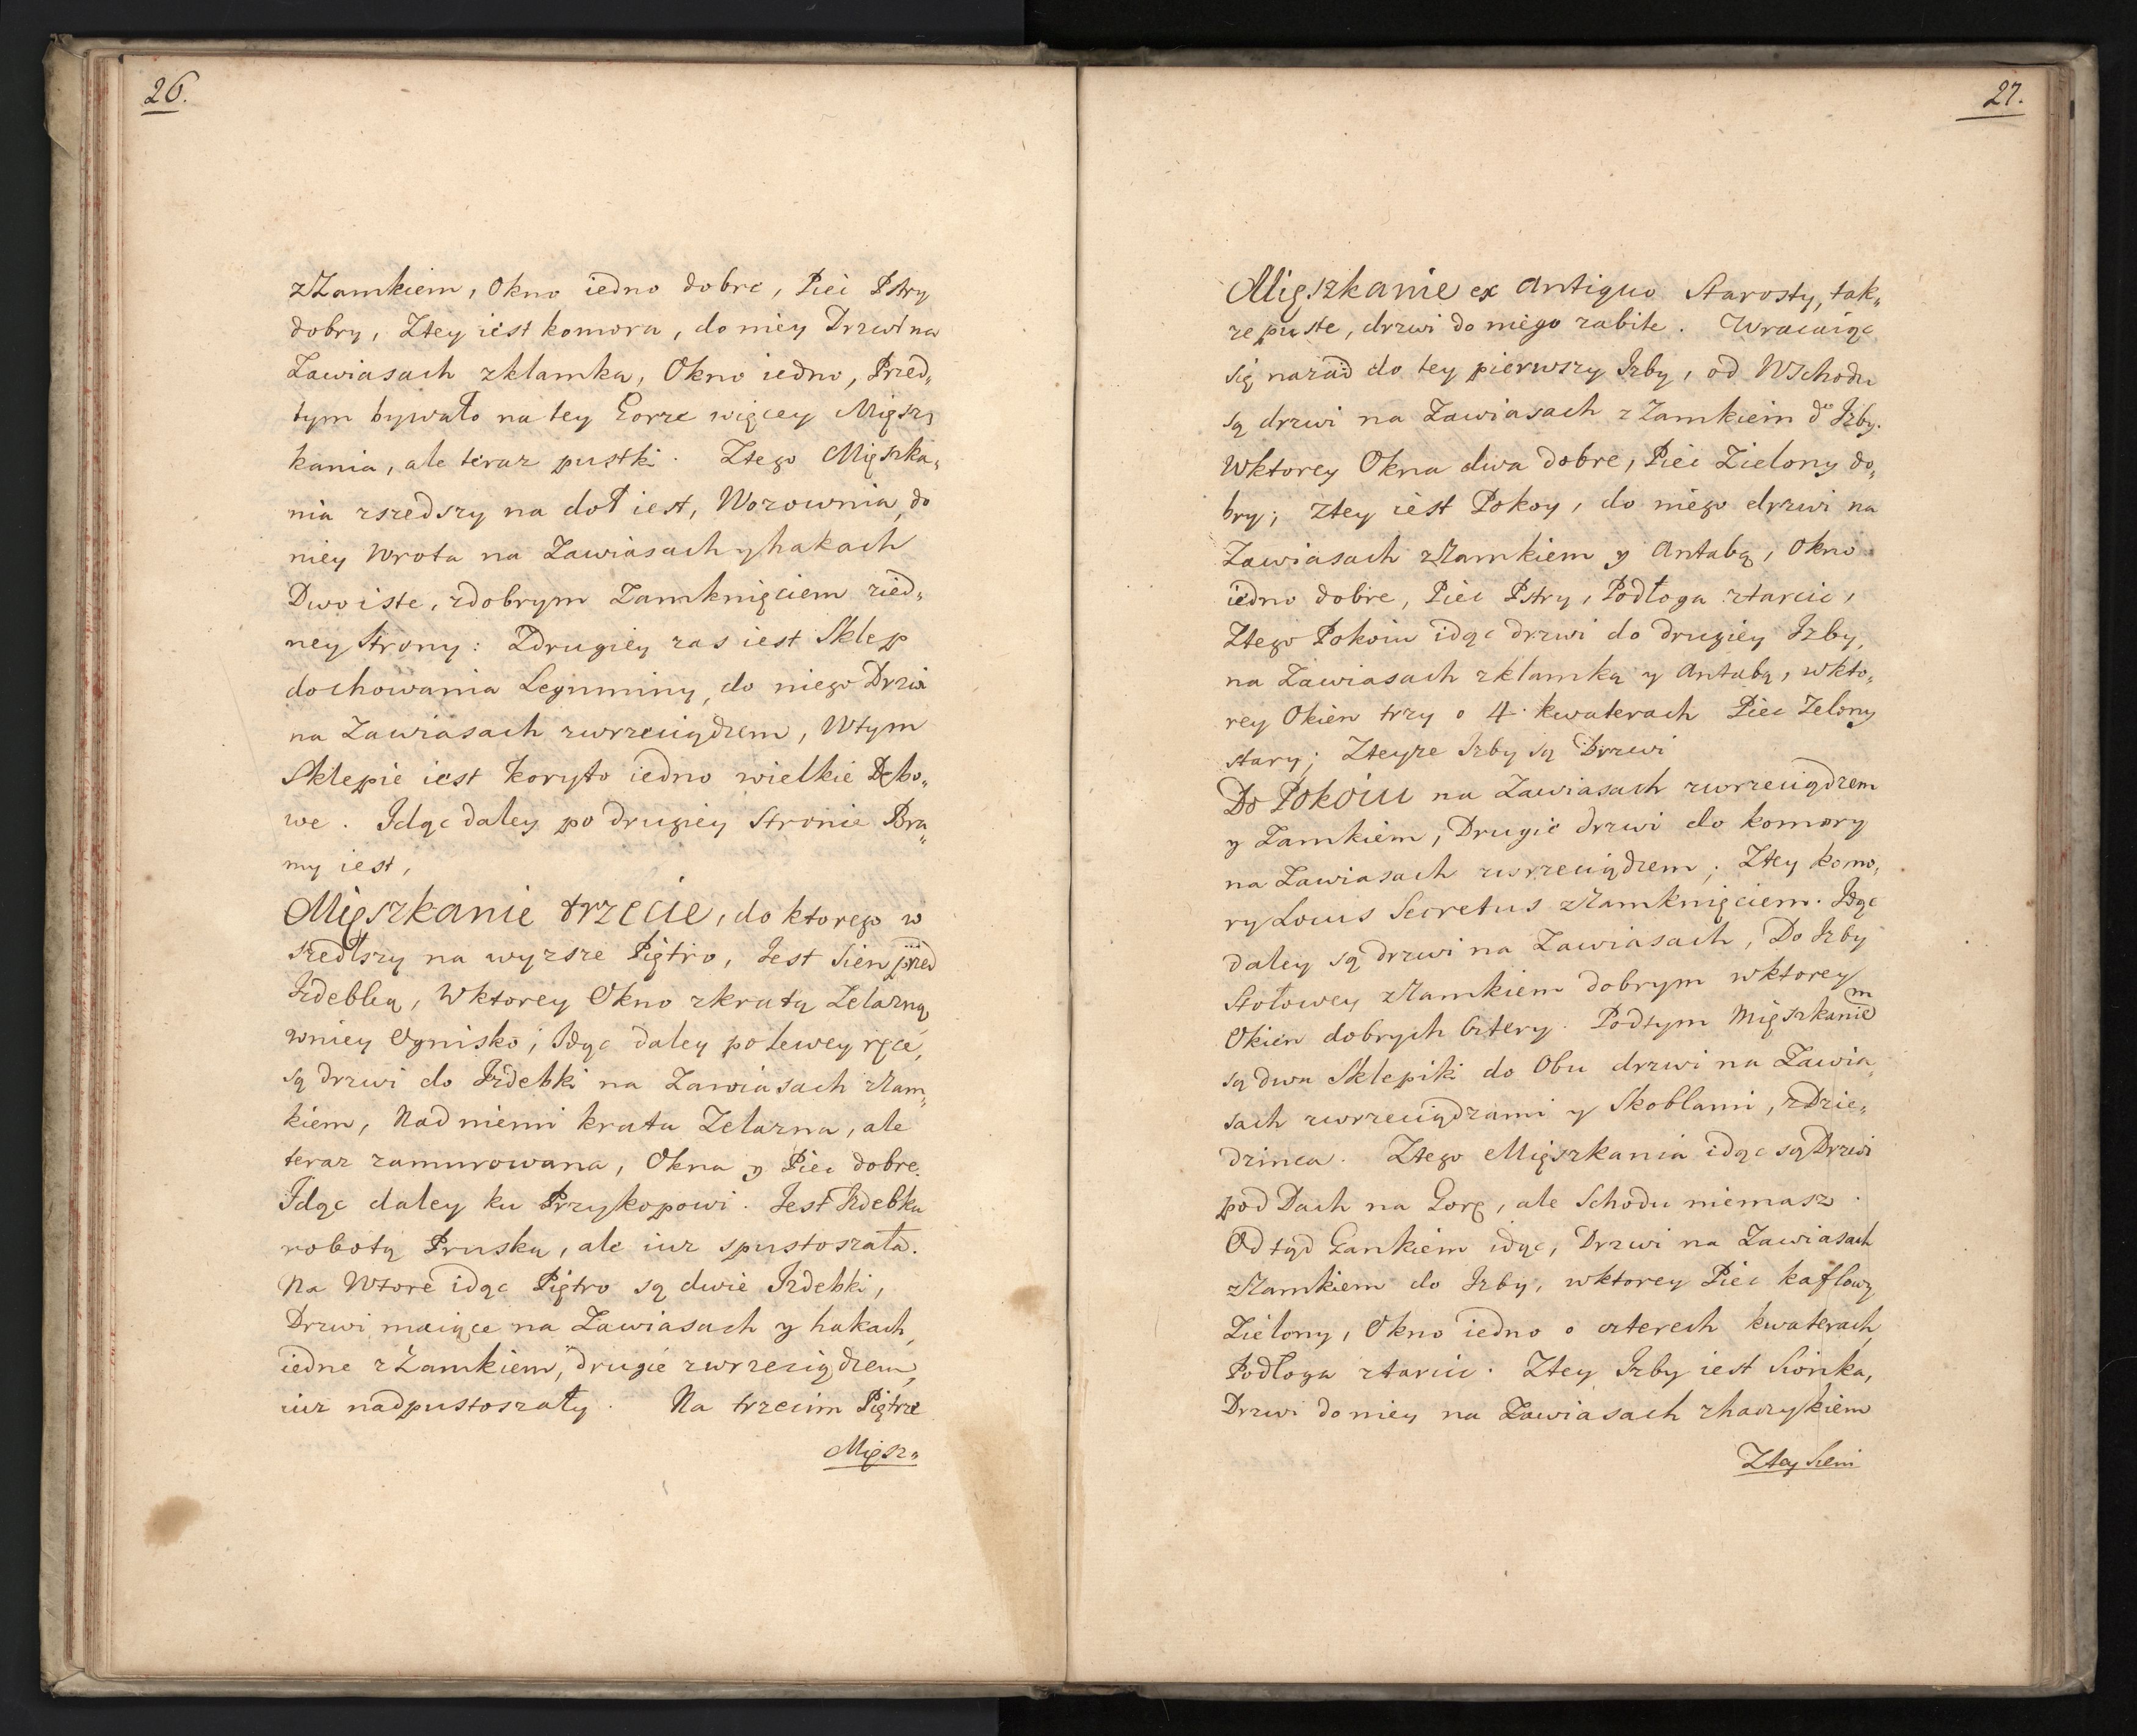 26.
zZamkiem, Okno iedno dobre, Piec Pstry
dobry, Ztey iest komora, do niey Drzwi na
Zawiasach zklamką, Okno iedno, Przed„
tym bywało na tey Gorze więcey Mięsz„
kania, ale teraz pustki. Ztego Mięszka„
nia zszedszy na doł iest, Wozownia, do
niey Wrota na Zawiasach y hakach
Dwoiste, zdobrym Zamknięciem zied„
ney Strony: Zdrugiey zas iest Sklep
dochowania Legumminy, do niego Drzwi
na Zawiasach zwrzeciądzem, Wtym
Sklepie iest Koryto iedno wielkie Dębo„
we. Idąc daley po drugiey Stronie Bra„
my iest,
Mięszkanie trzecie, do ktorego w
szedłszy na wyzsze Piętro, Iest Sien przed
Izdebką, Wktorey Okno zkratą Zelazną,
wniey Ognisko; Idąc daley poLewey ręce,
są drzwi do Izdebki na Zawiasach zZam„
kiem, Nad niemi krata Zelazna, ale
teraz zamurowana, Okna y Piec dobre.
Idąc daley ku Przykopowi. Iest Izdebka
robotą Pruską, ale iuz spustoszała.
Na Wtore idąc Piętro są dwie Izdebki,
Drzwi maiące na Zawiasach y hakach,
iedne zZamkiem, drugie zwrzeciądzem,
iuz nadpustoszały. Na trzecim Piętrze
Mięsz„
27.
Mięszkanie ex Antiquo Starosty, tak„
ze puste, drzwi do niego zabite. Wracaiąc
się nazad do tey pierwszy Izby, od Wschodu
są drzwi na Zawiasach z Zamkiem do Izby.
Wktorey Okna dwa dobre, Piec Zielony do„
bry; Ztey iest Pokoy, do niego drzwi na
Zawiasach zZamkiem y Antabą, Okno
iedno dobre, Piec Pstry, Podłoga ztarcic,
Ztego Pokoiu idąc drzwi do drugiey Izby,
na Zawiasach zklamką y Antabą, wkto„
rey Okien trzy o 4. kwaterach Piec Zelony
stary; Zteyze Izby są Drzwi
Do Pokoiu na Zawiasach zwrzeciądzem
y Zamkiem, Drugie drzwi do komory
na Zawiasach zwrzeciądzem; Ztey komo„
ry Locus Secretus zZamknięciem. Idąc
daley są drzwi na Zawiasach, Do Izby
Stołowey zZamkiem dobrym wktorey
Okien dobrych Cztery. Podtym Mięszkaniem
są dwa Sklepiki do Obu drzwi na Zawia„
sach zwrzeciądzami y Skoblami, zDzie„
dzinca. Ztego Mięszkania idąc są Drzwi
pod Dach na Gorę, ale Schodu niemasz.
Od tąd Gankiem idąc, Drzwi na Zawiasach
zZamkiem do Izby, wktorey Piec kaflowy
Zielony, Okno iedno o czterech kwaterach,
Podłoga ztarcic. Ztey Izby iest Sionka,
Drzwi do niey na Zawiasach zhaczykiem
Ztey Sieni